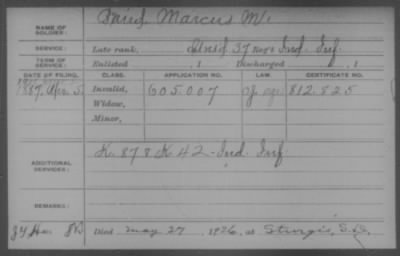 NAME OF SOLDIER: Marcus M.
SERVICE: Late rank, 37 Reg't Ind. Inf.
TERM OF SERVICE: Enlisted , 1 Discharged , 1
DATE OF FILING. CLASS. APPLICATION NO. LAW. CERTIFICATE NO.
1887, 5 Invalid, 605.007 812.825
Widow,
Minor,
ADDITIONAL SERVICES: K. 87 & K 42 - Ind. Inf.
REMARKS:
Died May 27, 1926, at Sturgis, S.D.